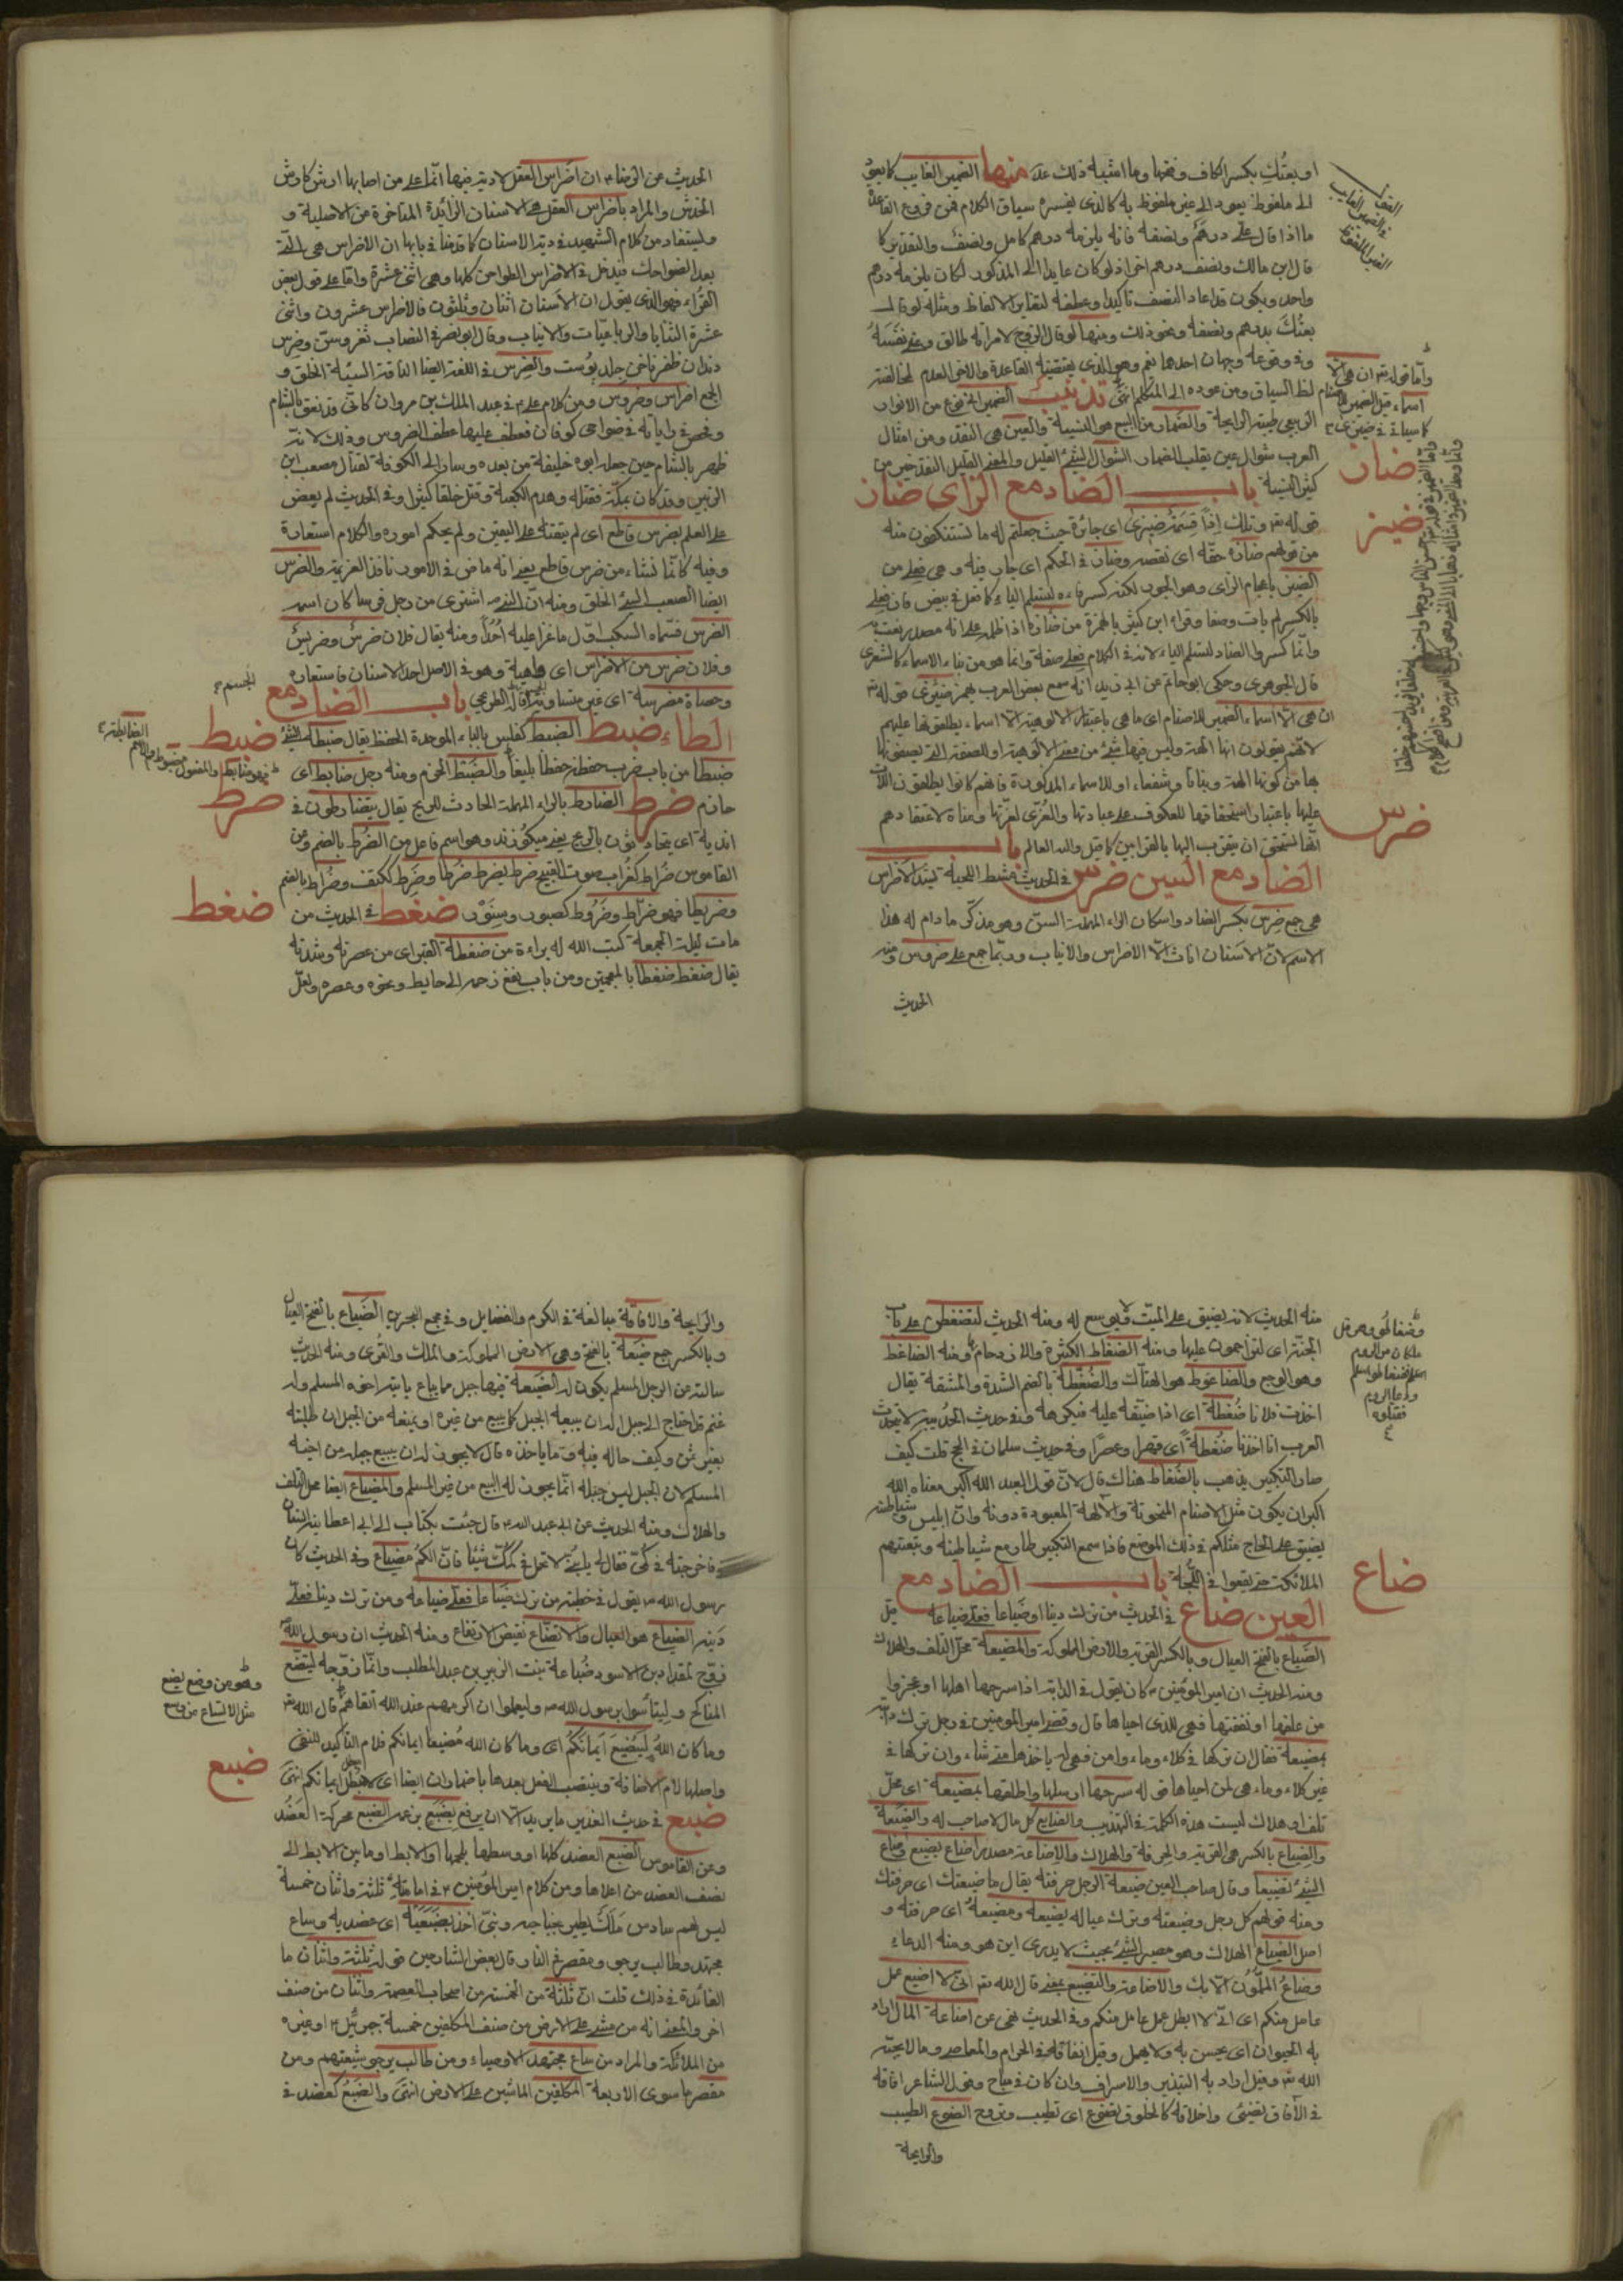 او بعتُكِ بكسر الكاف وفتحها وما اشبه ذلك عدّ منها الضمير الغايب كما يعود
الى ملفوظ يعود الى غير ملفوظ به كالذى يفسره سياق الكلام فمن فروع القاعدة
ما اذا قال علىّ درهم ونصفه فانه يلزمه درهم كامل ونصف والتقدير كما
قال ابن مالك ونصف درهم اخر اذ لو كان عايدا الى المذكور لكان يلزمه درهم
واحد ويكون قد اعاد النصف تاكيدا وعطفه لتغاير الالفاظ ومثله لو قال
بعتُكَ بدرهم ونصفه ونحو ذلك ومنها لو قال الزوج لامراته طالق وعنى نفسه
وفى وقوعه وجهان احدهما نعم وهو الذى يقتضيه القاعدة والاخر العدم لمخالفته
لظ السياق ومن عوده الى المتكلم انتهى تذنيب الضمير
الطيبة الرايحة والضمار من البيع هو النسية والعين هى النقد ومن امثال
العرب سؤال عين يقلب الضمار السؤال لشئ القليل والمعنى القليل النقد خير من
كثير النسية باب الضاد مع الزاى ضاز
قوله تع وتلك اذاً قسمةٌ ضيزى اى جائرة حيث جعلتم له ما تستنكفون منه
من قولهم ضازه حقّه اى نقصه وضاز فى الحكم اى جار فيه وهى فعلى من
الضيز باعجام الزاى وهو الجور لكنه كسر فاءه لتسلم الياء كما فعل فى بيض فان فعلى
بالكسر لم يات وصفا وقراه ابن كثير بالهمزة من ضازه اذا ظلمه على انه مصدر نعت به
وانّما كسروا الضاد لتسلم الياء لانه فى الكلام فعلى صفة وانما هو من بناء الاسماء كالشعرى
قال الجوهرى وحكى ابو حاتم عن ابى زيد انه سمع بعض العرب يهمز ضيزى قوله تع
ان هى الّا اسماء الضمير للاصنام اى ما هى باعتبار الالوهية الّا اسماء يطلقونها عليهم
لانهم يقولون انها الهة وليس فيها شئ من معنى الالوهية او للصفة التى يصفونها
بها من كونها الهة وبناتا وشفعاء او للاسماء المذكورة فانهم كانوا يطلقون اللات
عليها باعتبار استحقاقها للعكوف على عبادتها والعُزّى لعزّتها ومناة لاعتقادهم
انّها تستحق ان يتقرب اليها بالقرابين كما قيل والله العالم باب
الضاد مع السين ضرس فى الحديث مشط اللحية يشد الاضراس
هى جمع ضرس بكسر الضاد واسكان الراء المهملة السنّ وهو مذكّر ما دام له هذا
الاسم لانّ الاسنان اناث الّا الاضراس والانياب وربّما جمع على ضروس ومنه
الحديث
ضاز
ضيز
ضرس
الحديث عن الرضاء ان اضراس العقل لا دية فيها انّما على من اصابها ارش كارش
الخدش والمراد باضراس العقل هى الاسنان الزائدة المتاخرة عن الاصلية و
وليستفاد من كلام الشهيد فى دية الاسنان كما قدمنا فى بابها ان الاضراس هى الّتى
بعد الضواحك فيدخل فى الاضراس الطواحن كلها وهى اثنى عشرة واما على قول بعض
القرّاء فهو الذى يقول ان الاسنان اثنان وثلثون فالاضراس عشرون واثنى
عشرة الثنايا والرباعيّات والانياب وقال ابو نصر فى النصاب ثغر وسنّ وضرس
دندان ظفر ناخن جلد پوست والضرس فى اللغة ايضا الناقة السيئة الخلق و
الجمع اضراس وضروس ومن كلام علىّ فى عبد الملك بن مروان كانّى قد نعق بالشام
وفحص براياته فى ضواحى كوفان فعطف عليها عطف الضروس وذلك لانه
ظهر بالشام حين جعله ابوه خليفة من بعده وسار الى الكوفة لقتال مصعب ابن
الزبير وقد كان بمكّة فقتله وهدم الكعبة وقتل خلقا كثيرا وفى الحديث لم يعض
على العلم بضرس قاطع اى لم يتقنه على اليقين ولم يحكم اموره والكلام استعارة
وفيه كانّما نشاء من ضرس قاطع يعنى انه ماض فى الامور نافذ العزيمة والضرس
ايضا الصعب السيئ الخلق ومنه انّ النبى ص اشترى من رجل فرسا كان اسمه
الضرس فسمّاه السكب اوّل ما غزا عليه اُحُداً ومنه يقال فلان ضرس وضريس
وفلان ضرس من الاضراس اى داهية وهو فى الاصل احد الاسنان فاستعاره
وحصاة مضرسة اى غير متساوية قاله الطريحى باب الضاد مع
الطاء ضبط الضبط كفلس بالباء الموحدة الحفظ يقال ضبط الشئ
ضبطا من باب ضرب حفظه حفظا بليغا والضبط الحزم ومنه رجل ضابط اى
حازم ضرط الضارط بالراء المهملة الحادث للريح يقال يتضارطون فى
اندية اى يتحادثون بالريح يعنى ميگوزند وهو اسم فاعل من الضرط بالضم وعن
القاموس ضراط كغراب صوت القبيح ضرط يضرط ضرطا وضرط ككتف وضراط بالضم
وضريطا فهو ضرّاط وضروط كصبور وسنّور ضغط فى الحديث من
مات ليلة الجمعة كتب الله له براءة من ضغطة القبر اى من عصرته وشدته
يقال ضغط ضغطا بالمعجمتين ومن باب نفع زحمه الى حايط ونحوه وعصره ولعلّ
ضبط
ضرط
ضغط
منه الحديث لانه يضيق على الميّت ويوسع له ومنه الحديث لتضغطون على باب
الجنّة اى لتزاحمون عليها ومنه الضغاط الكثرة والازدحام ومنه الضاغط
وهو الوجع والضاغوط هو الهتاك والضُغطة بالضم الشدة والمشقة يقال
اخذت فلانا ضُغطة اى اذا ضيّقه عليه فيكرهه وفى حديث الحُديبية لا يتحدث
العرب انا اخذنا ضُغطة اى قهرا وعصرا وفى حديث سلمان فى الحج قلت كيف
صار التكبير يذهب بالضغاط هناك قال لانّ قول العبد الله اكبر معناه الله
اكبر ان يكون مثل الاصنام المنحوتة والالهة المعبودة دونه وان ابليس وشياطينه
يضيق على الحاج مسلكهم فى ذلك الموضع فاذا سمع التكبير طار مع شياطينه وتبعتهم
الملائكة حتى يقعوا فى اللُّجة باب الضاد مع
العين ضاع فى الحديث من ترك دينا او ضياعا فعلىّ ضياعا قيل
الضياع بالفتح العيال وبالكسر القرية والارض المملوكة والمضيعة محلّ التلف والهلاك
ومنه الحديث ان امير المؤمنين كان يقول فى الدابة اذا سرحها اهلها او عجزوا
من علفها او نفقتها فهى للذى احياها قال وقضى امير المؤمنين فى رجل ترك دابته
بمضيعة فقال ان تركها فى كلاء وماء وامن فهى له ياخذها متى شاء وان تركها فى
غير كلاء وماء فهى لمن احياها قوله سرحها ارسلها واطلقها بمضيعة اى محلّ
تلف او هلاك ليست هذه الكلمة فى التهذيب والضايع كل مال لا صاحب له والضيعة
والضياع بالكسر هى القرية والحرفة والهلاك والاضاعة مصدر اضاع يضيع وضاع
الشئ تضييعا وقال صاحب العين ضيعة الرجل حرفته يقال ما ضيعتك اى حرفتك
ومنه قولهم كل رجل وضيعته وترك عياله بضيعة ومضيعة اى حرفته و
اصل الضياع الهلاك وهو مصير الشئ بحيث لا يدرى اين هو ومنه الدعاء
وضاعُ الملمّون الّا بك والاضاعة والتضييع بمعنى قال الله تع انّى لا اضيع عمل
عامل منكم اى انّى لا ابطل عمل عامل منكم وفى الحديث نهى عن اضاعة المال اراد
به الحيوان اى يحسن به ولا يهمل وقيل انفاقه فى الحرام والمعاصى وما لا يحبّه
الله تع وقيل اراد به التبذير والاسراف وان كان فى مباح وقول الشاعر افاقه
فى الآفاق تضيئ واخلاقه كالخلوق تضوع اى تطيب وتروح الضوع الطيب
والرايحة
ضاع
والرايحة والافاقة مبالغة فى الكرم والفضايل وفى مجمع البحرين الضياع بالفتح العيال
وبالكسر جمع ضيعة بالفتح وهى الارض المملوكة والملك والقرى ومنه الحديث
سالته عن الرجل المسلم يكون له الضيعة فيها جبل مما يباع ياتيه اخوه المسلم وله
غنم قد احتاج الى جبل اله ان يبيعه الجبل كما يبيع من غيره او يمنعه من الجبل ان طلبه
بغير ثمن وكيف حاله فيه وما ياخذه قال لا يجوز له ان يبيع جبله من اخيه
المسلم لان الجبل ليس جبله انّما يجوز له البيع من غير المسلم والمضياع ايضا محل التلف
والهلاك ومنه الحديث عن ابى عبد الله قال جئت بكتاب الى ابى اعطانيه انسان
فاخرجته فى كُمّى فقال له يا بُنىّ لا تحمل فى كمّك شيئا فانّ الكُم مضياع وفى الحديث كان
رسول الله ص يقول فى خطبته من ترك ضياعا فعلىّ ضياعه ومن ترك دينا فعلىّ
دينه الضياع هو العيال والاتضاع نقيض الارتفاع ومنه الحديث ان رسول الله
زوّج لمقداد بن الاسود ضُباعة بنت الزبير بن عبد المطلب وانّما زوّجه ليتّضع
المناكح وليتأسّوا برسول الله ص وليعلموا ان اكرمهم عند الله اتقاهم قال الله تع
وما كان الله ليضيع ايمانكم اى وما كان الله مُضيعا ايمانكم فلام التاكيد للنفى
واصلها لام الاضافة وينتصب الفعل بعدها باضمار ان ايضا اى لا يبطل ايمانكم انتهى
ضبع فى حديث الغدير ما يريد الّا ان يرفع بضبع بن عمه الضبع محركة العضد
وعن القاموس الضبع العضد كلها او وسطها بلحمها او الابط او ما بين الابط الى
نصف العضد من اعلاها ومن كلام امير المؤمنين ثلثة واثنان خمسة
ليس لهم سادس مَلَك يطير بجناحيه ونبىّ اخذ بضبعيه اى عضديه وساع
مجتهد وطالب يرجو ومقصر فى النار قال بعض الشارحين قوله ثلثة واثنان ما
الفائدة فى ذلك قلت انّ ثلثة من الخمسة من اصحاب العصمة واثنان من صنف
اخر والمعنى انه من مشى على الارض من صنف المكلفين خمسة جبرئيل او غيره
من الملائكة والمراد من ساع مجتهد الاوصياء ومن طالب يرجو شيعتهم ومن
مقصر ما سوى الاربعة المكلفين الماشين على الارض انتهى والضبع كعضد فى
وهو من وضع يضع
مثل الاتساع من وسع
ضبع